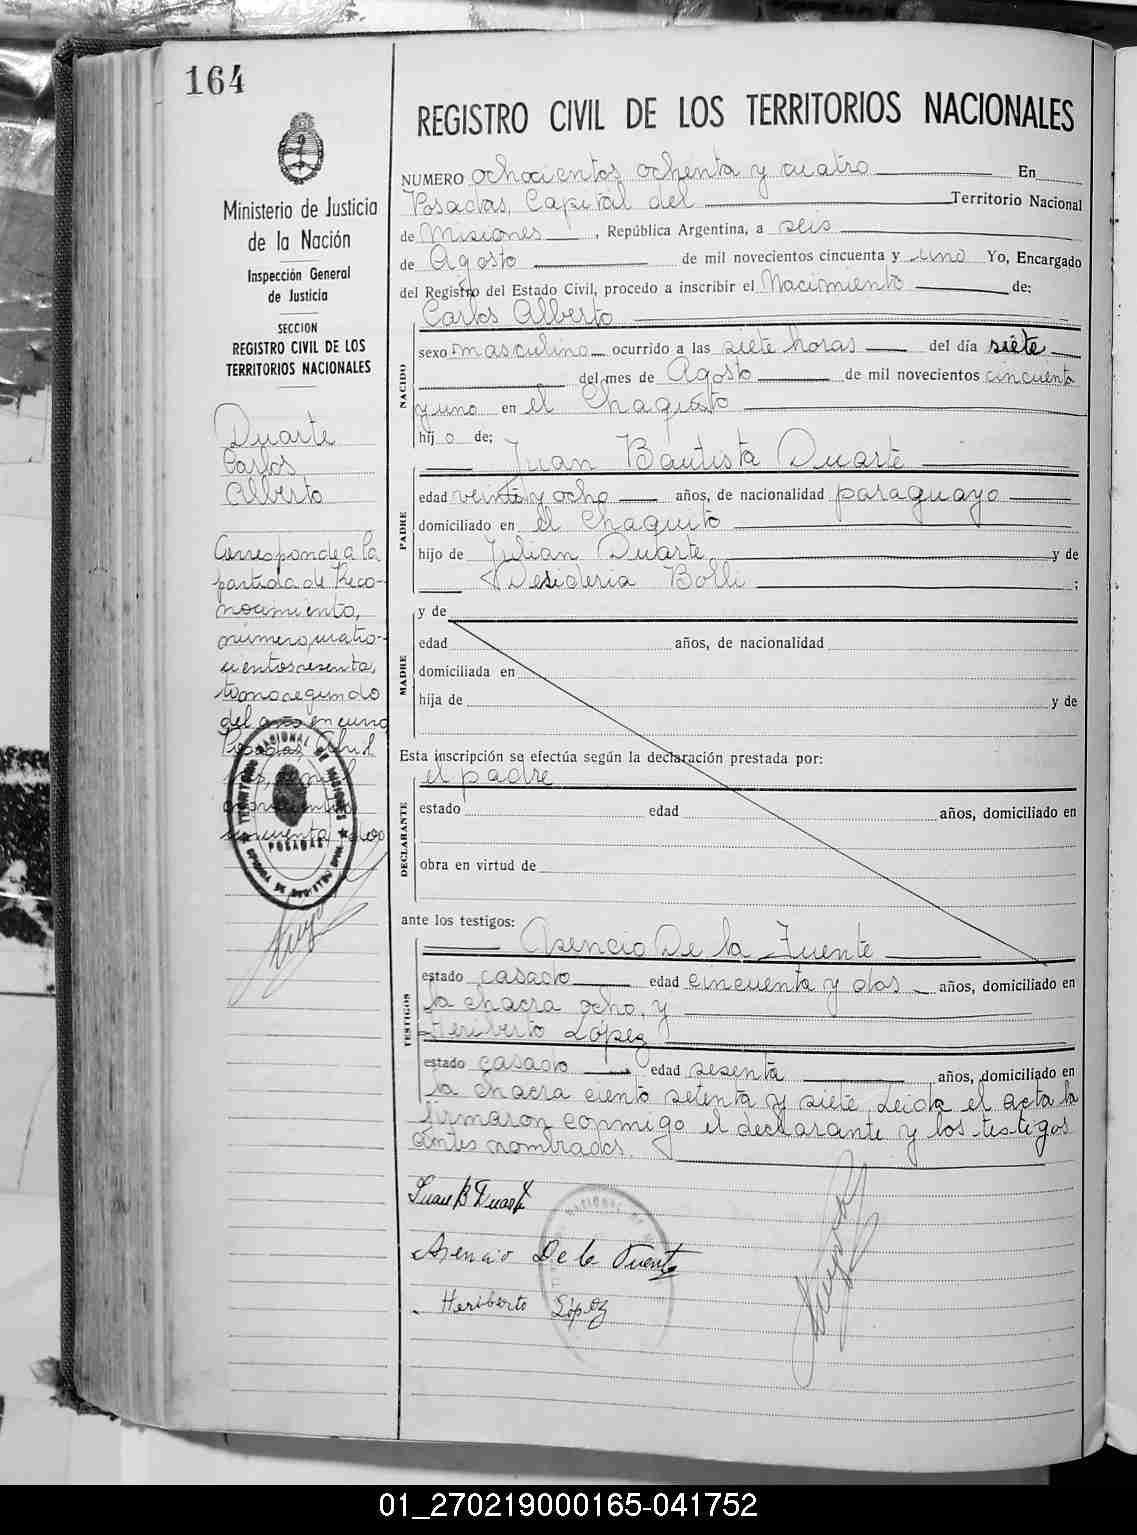 164
Ministerio de Justicia
de la Nación
Inspección General
de Justicia
SECCION
REGISTRO CIVIL DE LOS
TERRITORIOS NACIONALES
Duarte
Carlos
Alberto
Corresponde a la
partida de Reco-
nocimiento,
número cuatro-
cientos sesenta,
tomo segundo
del año en curso
Posadas, Abril
cincuenta y dos
TERRITORIO NACIONAL DE MISIONES
POSADAS
REGISTRO CIVIL DE LOS TERRITORIOS NACIONALES
NUMERO ochocientos ochenta y cuatro En
Posadas, Capital del Territorio Nacional
de Misiones, República Argentina, a seis
de Agosto de mil novecientos cincuenta y uno Yo, Encargado
del Registro del Estado Civil, procedo a inscribir el Nacimiento de:
Carlos Alberto
NACIDO
sexo masculino ocurrido a las siete horas del día siete
del mes de Agosto de mil novecientos cincuenta
y uno en el Chaquito
hijo de;
Juan Bautista Duarte
PADRE
edad veinte y ocho años, de nacionalidad paraguayo
domiciliado en el Chaquito
hijo de Julian Duarte y de
Desideria Bolli ;
y de
MADRE
edad años, de nacionalidad
domiciliada en
hija de y de
Esta inscripción se efectúa según la declaración prestada por:
el padre
DECLARANTE
estado edad años, domiciliado en
obra en virtud de
ante los testigos:
Asencio De la Fuente
TESTIGOS
estado casado edad cincuenta y dos años, domiciliado en
la chacra ocho, y
Heriberto López
estado casado edad sesenta años, domiciliado en
la chacra ciento setenta y siete. Leida el acta la
firmaron conmigo el declarante y los testigos
antes nombrados.
Juan B Duarte
Asencio De la Fuente
Heriberto López
01_270219000165-041752